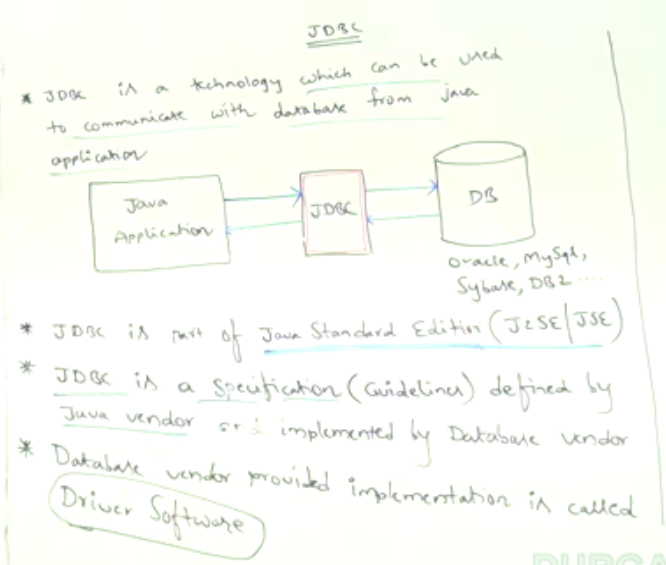 JDBC
* JDBC is a technology which can be used
to communicate with database from java
application
Java
Application
JDBC
DB
Oracle, MySql,
Sybase, DB2 ....
* JDBC is part of Java Standard Edition (J2SE|JSE)
* JDBC is a Specification (Guidelines) defined by
Java vendor implemented by Database vendor
* Database vendor provided implementation is called
Driver Software